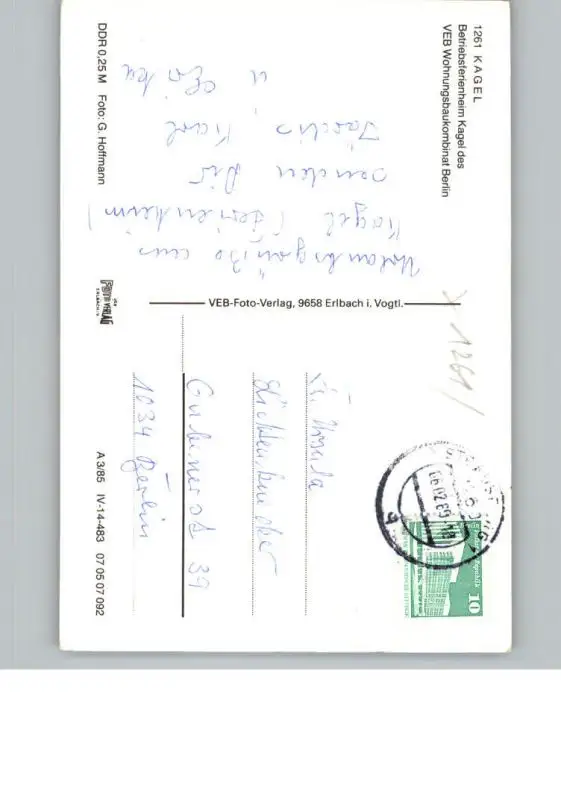 1261 KAGEL
Betriebsferienheim Kagel des
VEB Wohnungsbaukombinat Berlin
Urlaubsgrüße aus
Kagel (Ferienheim)
senden Dir
Karl
u
DDR 0,25 M Foto: G. Hoffmann
VEB-Foto-Verlag, 9658 Erlbach i. Vogtl.
FOTO VERLAG
ERLBACH
1261
06.02.89
10
Fr. Ursula
Lichtenknecker
Gubenerst 39
1034 Berlin
A 3/85 IV-14-483 07 05 07 092